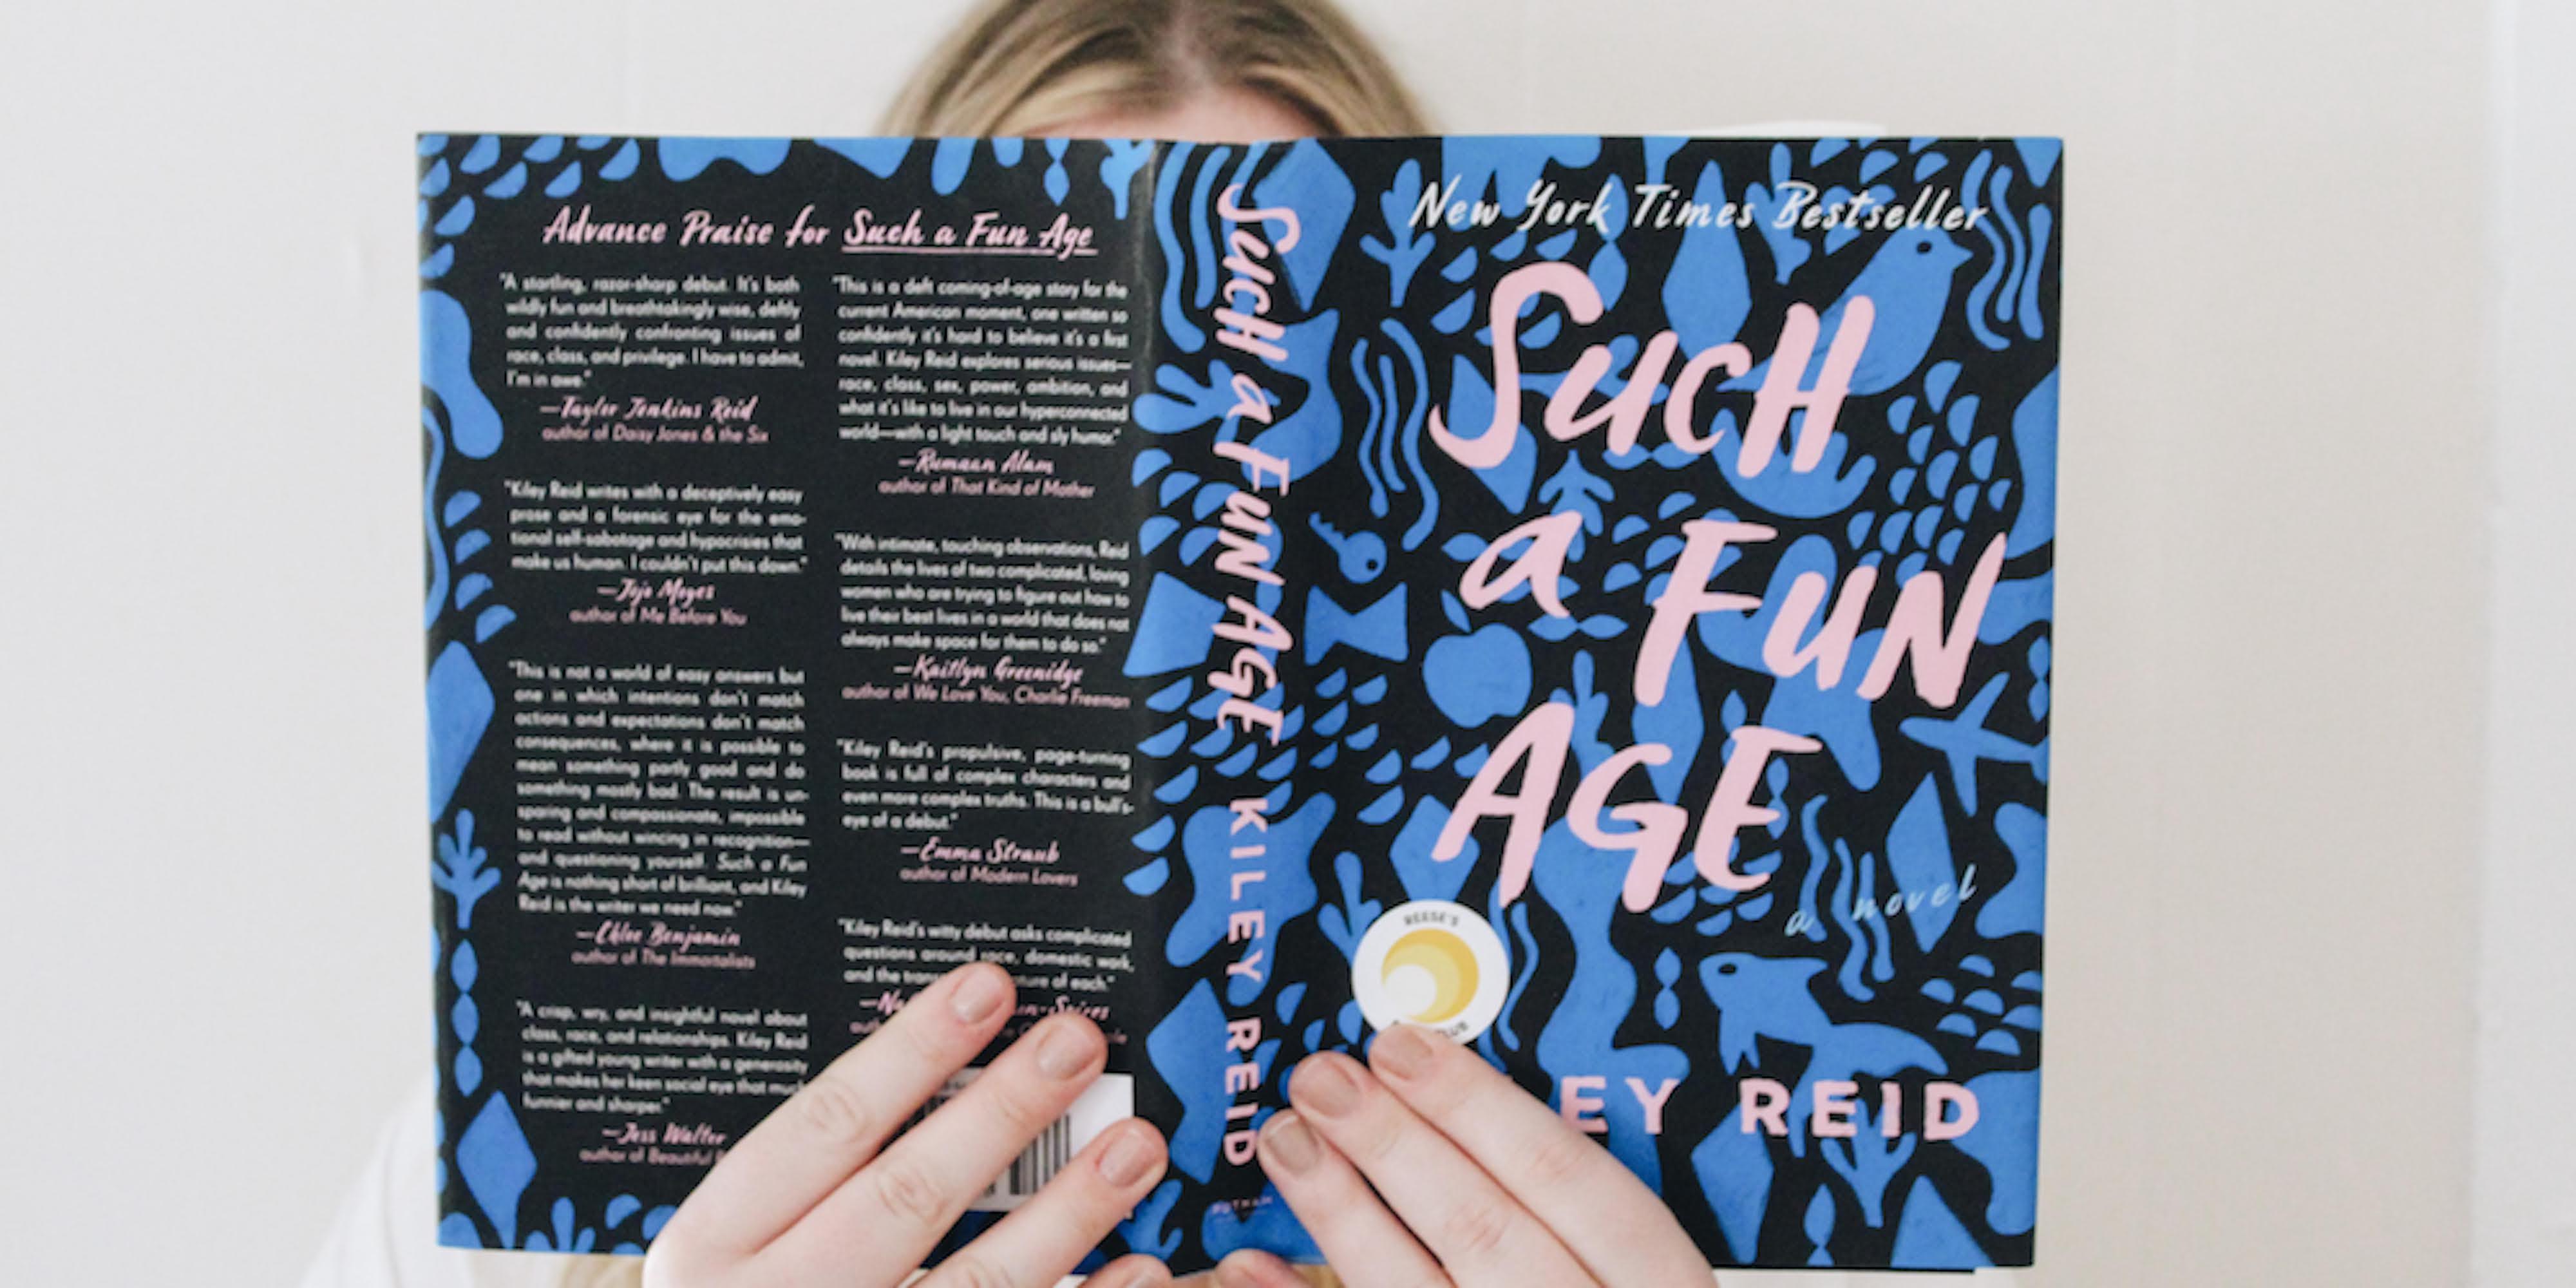 Advance Praise for Such a Fun Age
"A startling, razor-sharp debut. It's both
wildly fun and breathtakingly wise, deftly
and confidently confronting issues of
race, class, and privilege. I have to admit,
I'm in awe."
—Taylor Jenkins Reid
author of Daisy Jones & the Six
"Kiley Reid writes with a deceptively easy
prose and a forensic eye for the emo-
tional self-sabotage and hypocrisies that
make us human. I couldn't put this down."
—Jojo Moyes
author of Me Before You
"This is not a world of easy answers but
one in which intentions don't match
actions and expectations don't match
consequences, where it is possible to
mean something partly good and do
something mostly bad. The result is un-
sparing and compassionate, impossible
to read without wincing in recognition—
and questioning yourself. Such a Fun
Age is nothing short of brilliant, and Kiley
Reid is the writer we need now."
—Chloe Benjamin
author of The Immortalists
"A crisp, wry, and insightful novel about
class, race, and relationships. Kiley Reid
is a gifted young writer with a generosity
that makes her keen social eye that much
funnier and sharper."
—Jess Walter
author of Beautiful
"This is a deft coming-of-age story for the
current American moment, one written so
confidently it's hard to believe it's a first
novel. Kiley Reid explores serious issues—
race, class, sex, power, ambition, and
what it's like to live in our hyperconnected
world—with a light touch and sly humor."
—Rumaan Alam
author of That Kind of Mother
"With intimate, touching observations, Reid
details the lives of two complicated, loving
women who are trying to figure out how to
live their best lives in a world that does not
always make space for them to do so."
—Kaitlyn Greenidge
author of We Love You, Charlie Freeman
"Kiley Reid's propulsive, page-turning
book is full of complex characters and
even more complex truths. This is a bull's-
eye of a debut."
—Emma Straub
author of Modern Lovers
"Kiley Reid's witty debut asks complicated
questions around race, domestic work,
and the of each."
SUCH a FUN AGE KILEY REID
PUTNAM
New York Times Bestseller
SUCH
a FUN
AGE
a novel
REESE'S
EY REID